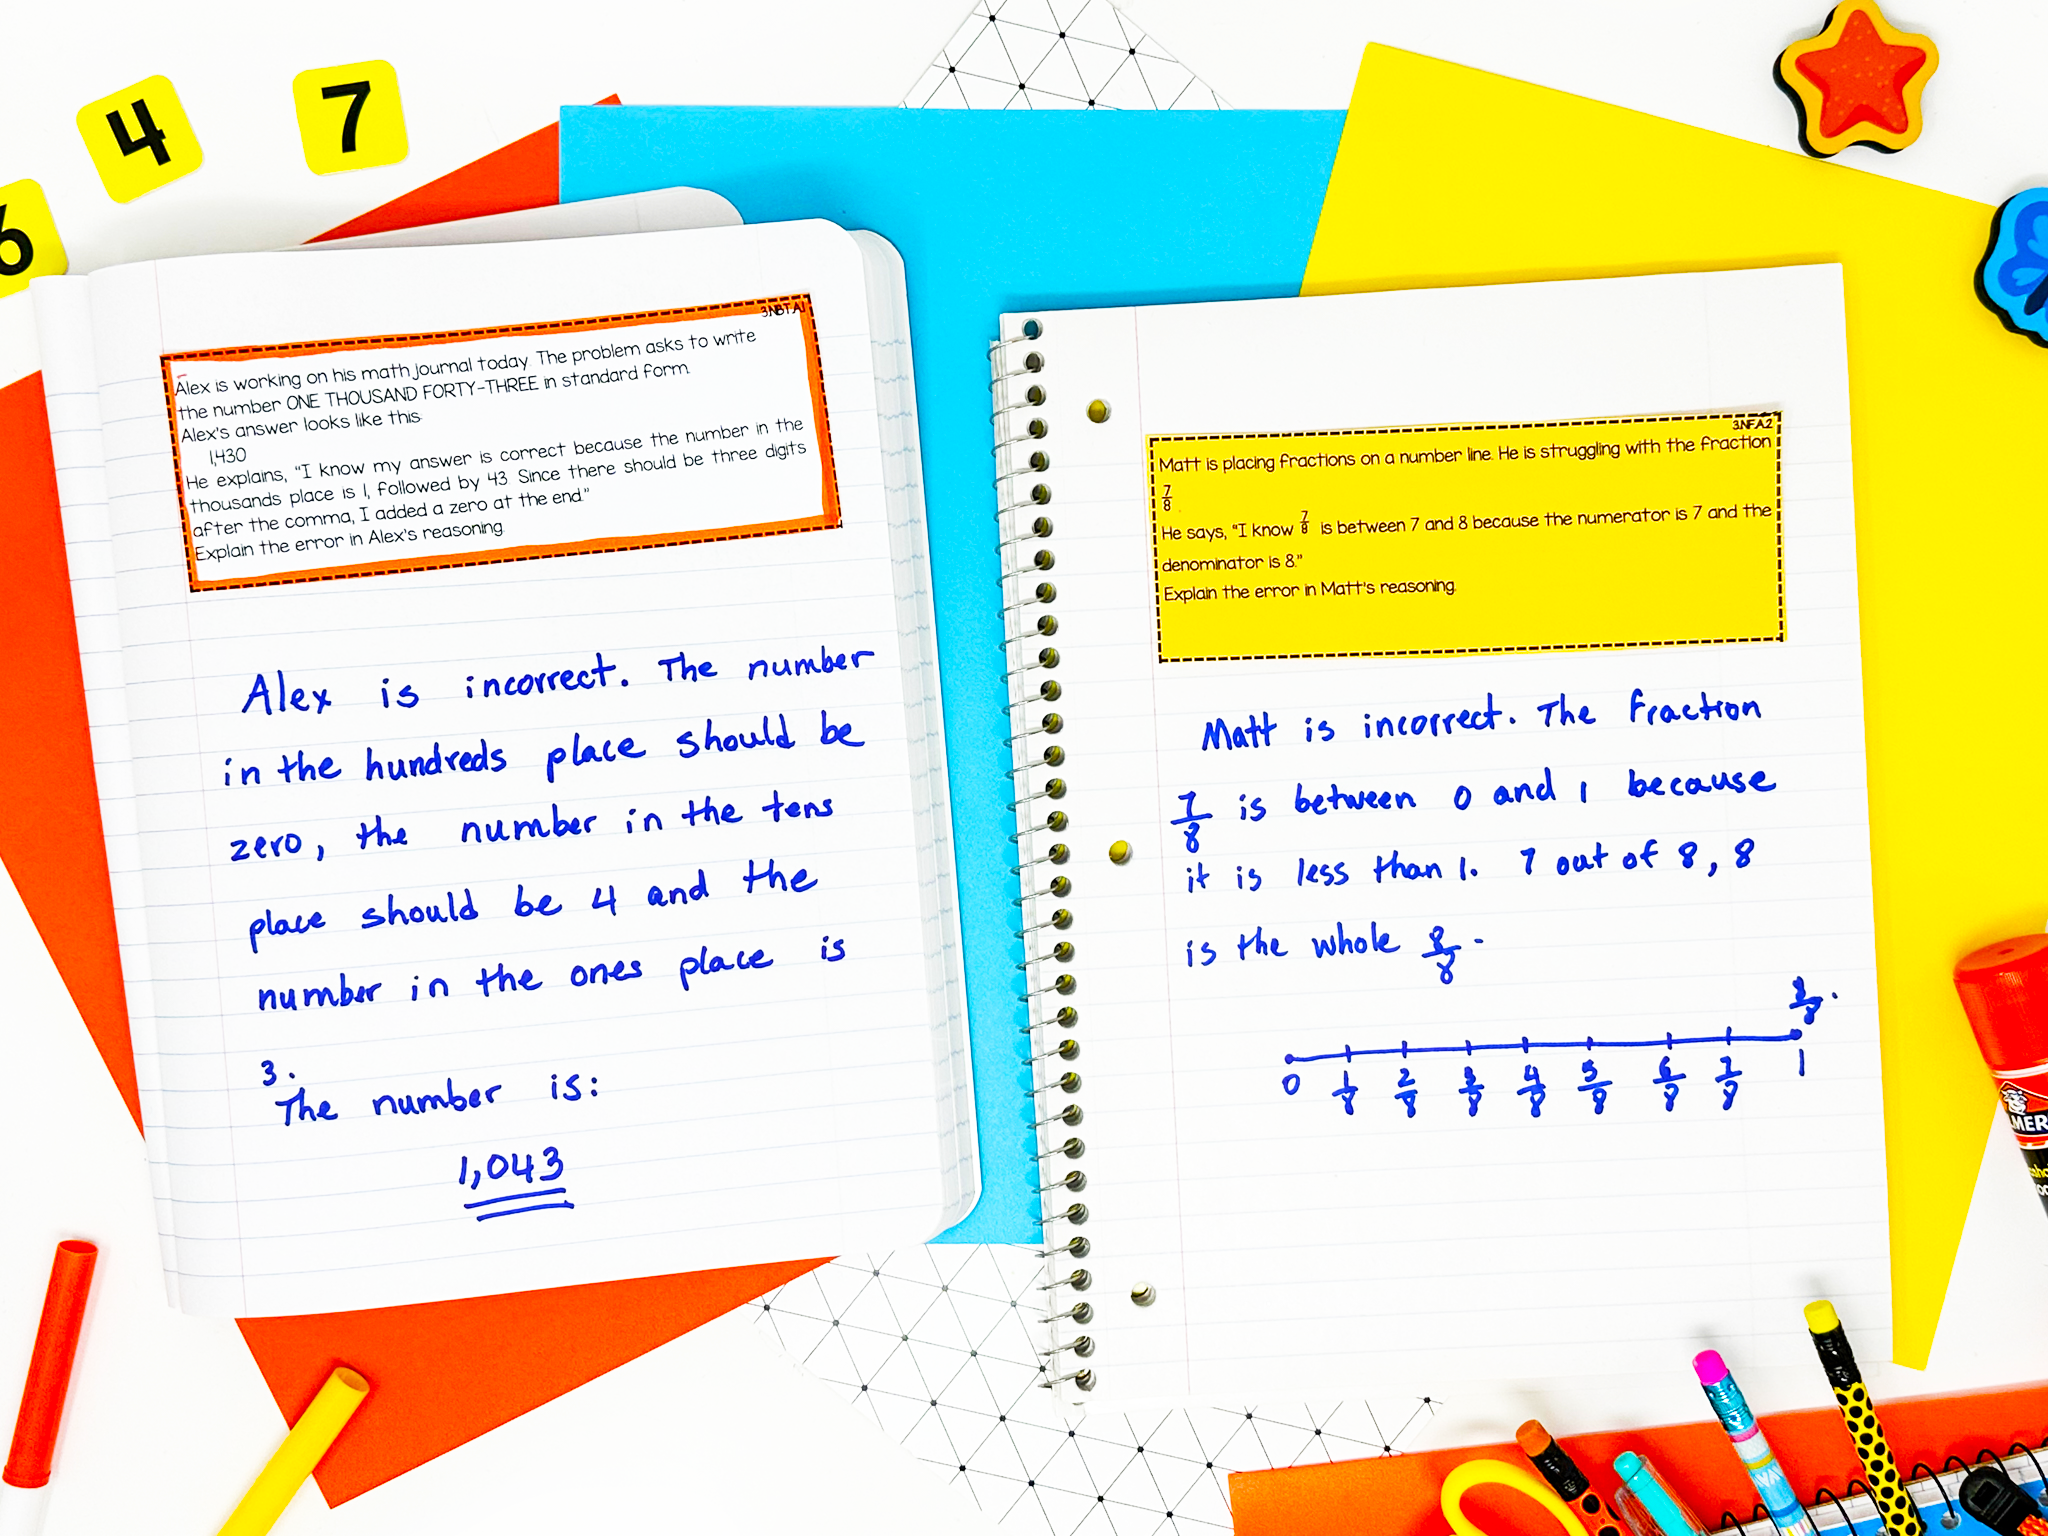 4
7
6
3.NBT.A.1
Alex is working on his math journal today. The problem asks to write
the number ONE THOUSAND FORTY-THREE in standard form.
Alex's answer looks like this:
1,430
He explains, "I know my answer is correct because the number in the
thousands place is 1, followed by 43. Since there should be three digits
after the comma, I added a zero at the end."
Explain the error in Alex's reasoning.
Alex is incorrect. The number
in the hundreds place should be
zero, the number in the tens
place should be 4 and the
number in the ones place is
3.
The number is:
1,043
3.NF.A.2
Matt is placing fractions on a number line. He is struggling with the fraction
7/8
He says, "I know 7/8 is between 7 and 8 because the numerator is 7 and the
denominator is 8."
Explain the error in Matt's reasoning.
Matt is incorrect. The fraction
7/8 is between 0 and 1 because
it is less than 1. 7 out of 8, 8
is the whole 8/8.
8/8.
0 1/8 2/8 3/8 4/8 5/8 6/8 7/8 1